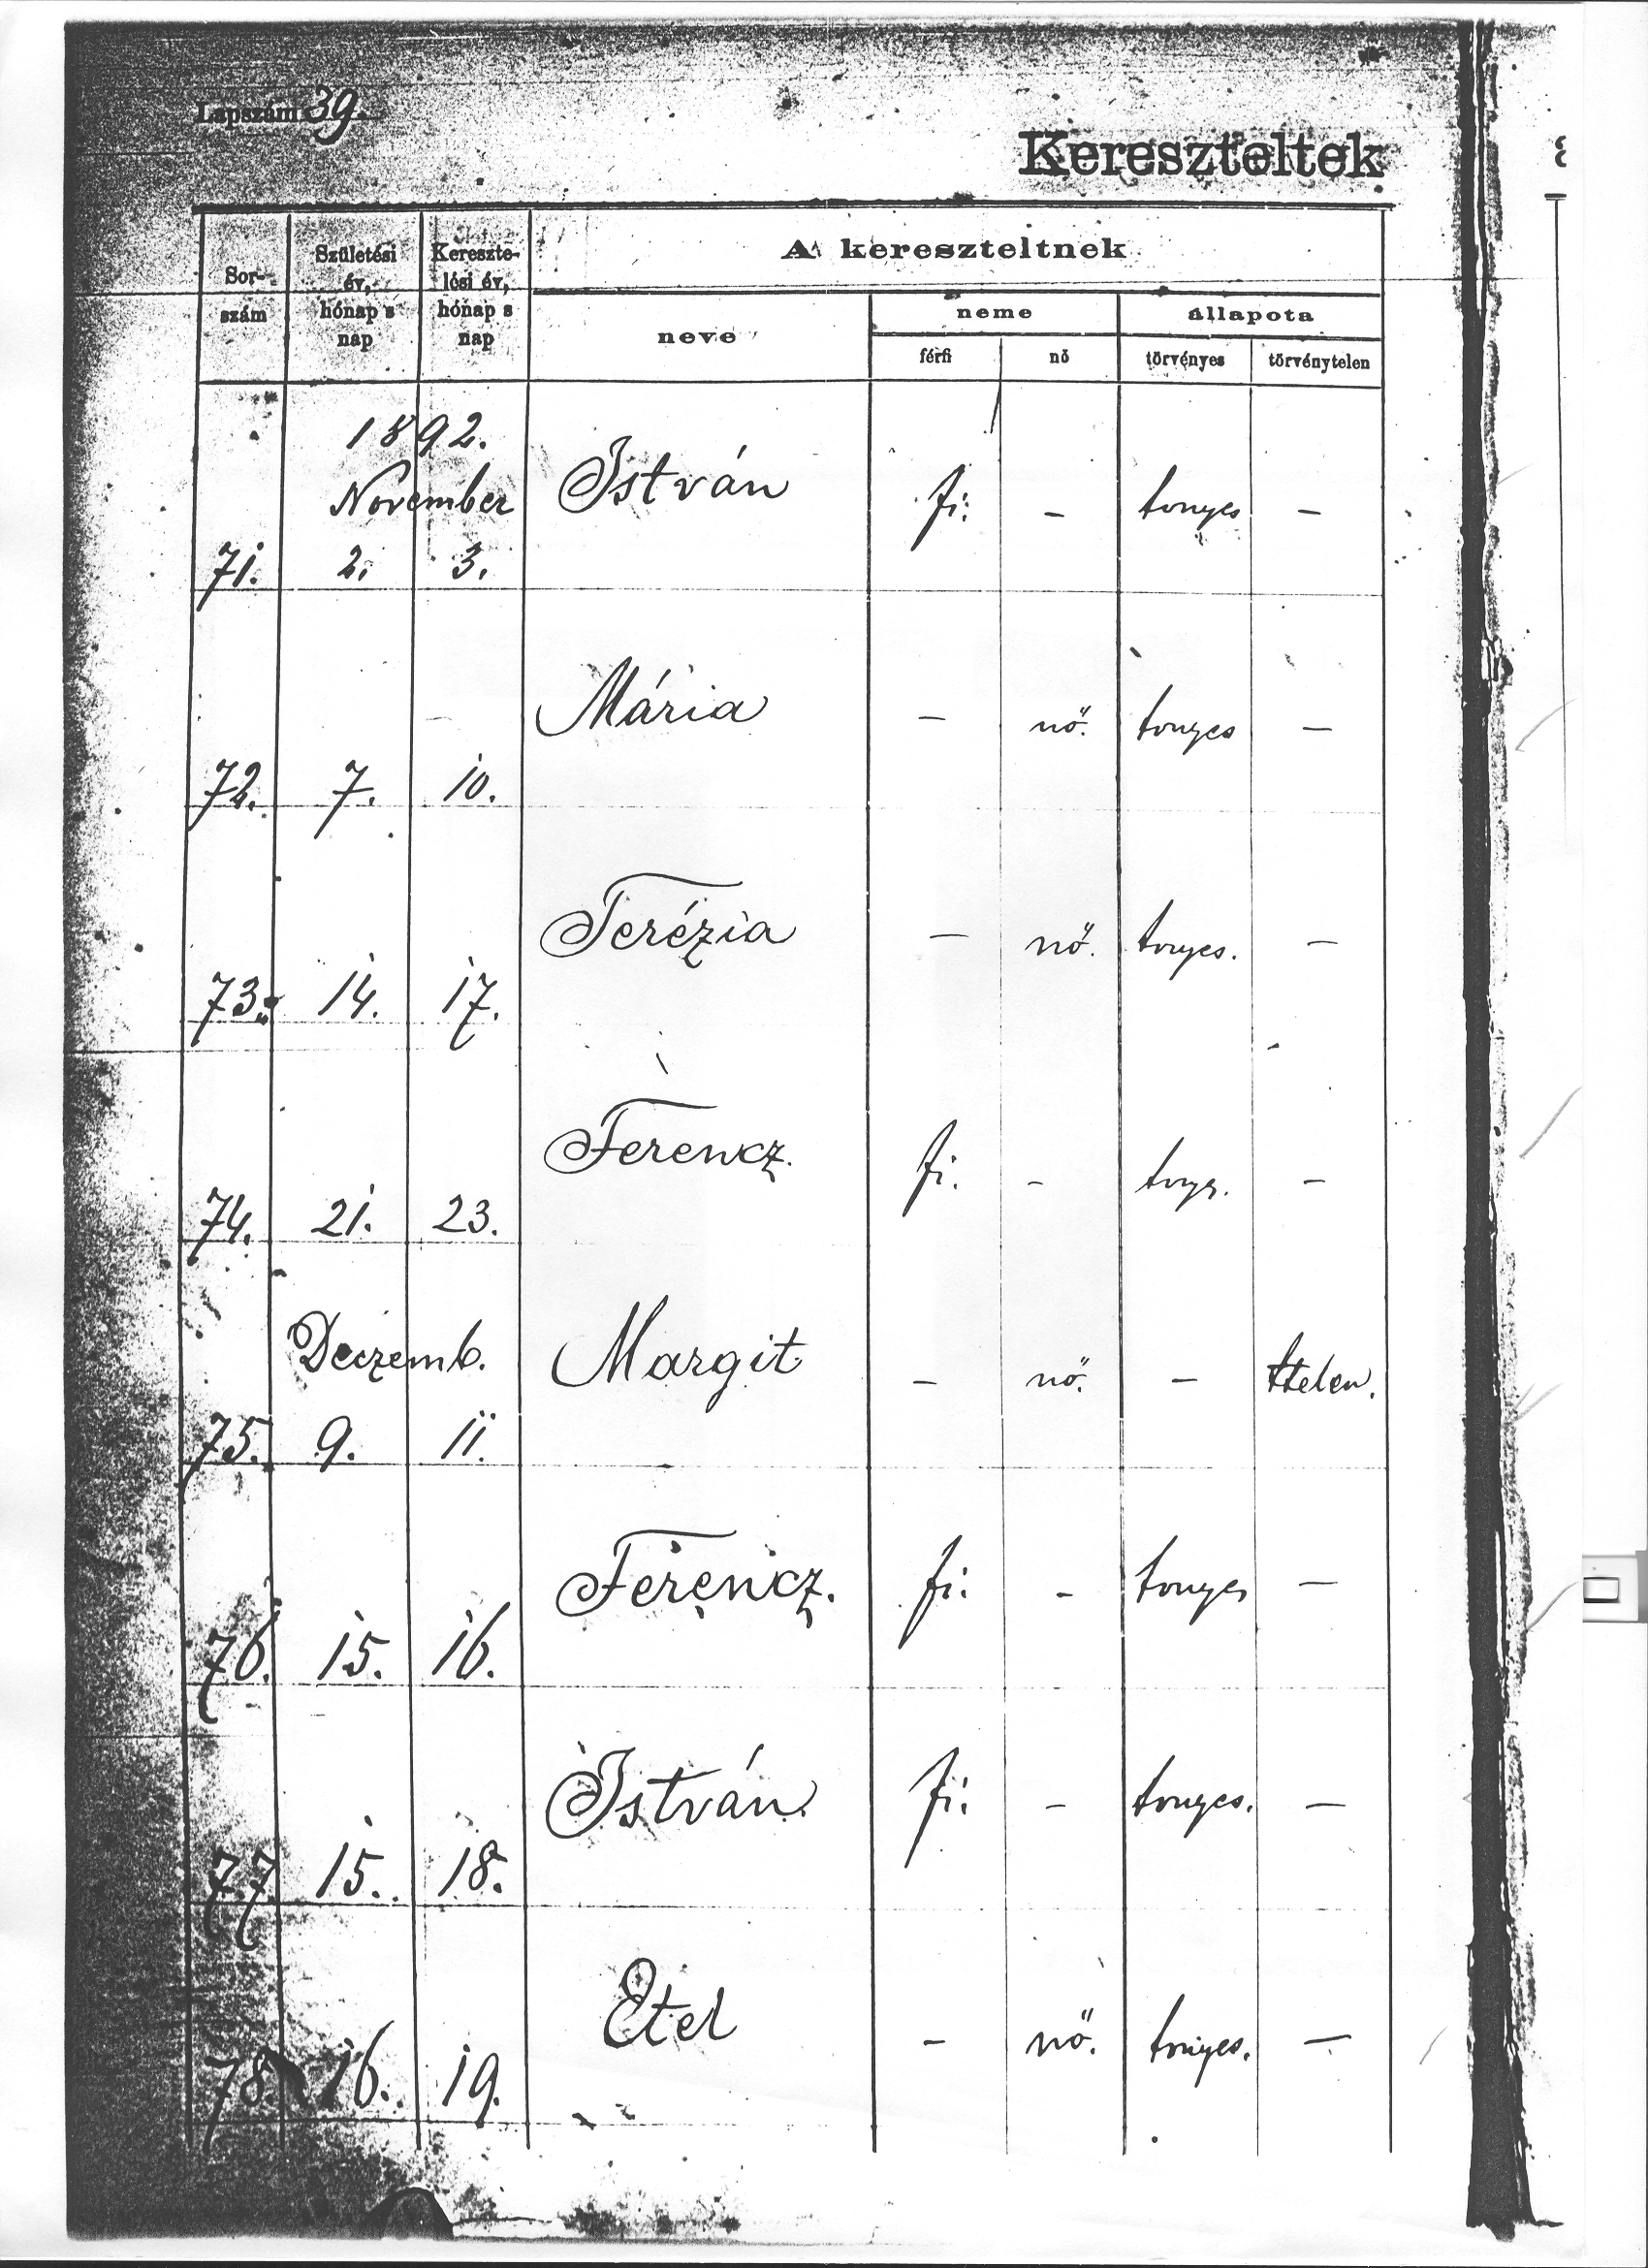 Lapszám 39.
Kereszteltek
Sor-
szám
Születési
év,
hónap s
nap
Kereszte-
lési év,
hónap s
nap
A kereszteltnek
neve
neme
állapota
férfi
nő
törvényes
törvénytelen
1892.
November
71. 2. 3. István fi. – tvnyes –
72. 7. 10. Mária – nő. tvnyes –
73. 14. 17. Terézia – nő. tvnyes. –
74. 21. 23. Ferencz. fi. – tvnys. –
Deczemb.
75. 9. 11. Margit – nő. – ttelen.
76. 15. 16. Ferencz. fi. – tvnyes –
77 15. 18. István. fi. – tvnyes. –
78 16. 19. Etel – nő. tvnyes. –